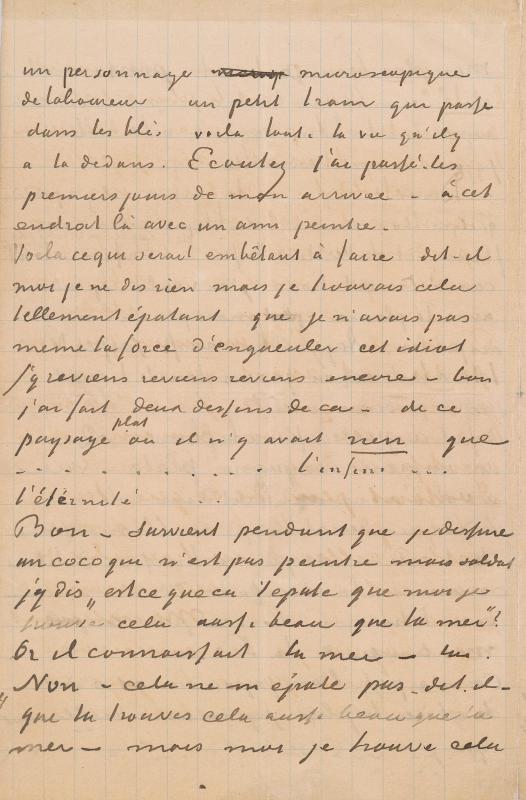 un personnage microscopique
de laboureur un petit train qui passe
dans les blés voila toute la vie qu'il y
a la dedans. Ecoutez j'ai passé les
premiers jours de mon arrivee – à cet
endroit là avec un ami peintre.
Voila ce qui serait embêtant à faire dit-il
moi je ne dis rien mais je trouvais cela
tellement épatant que je n'avais pas
meme la force d'engueuler cet idiot
j'y reviens reviens reviens encore – bon
j'ai fait deux dessins de ca – de ce
paysage plat où il n'y avait rien que
. . . . . . . . . l'infini ...
l'étérnité . .
Bon – survient pendant que je dessine
un coco qui n'est pas peintre mais soldat
j'y dis „est ce que ca t'epate que moi je
trouve cela aussi beau que la mer"?
Or il connaissait la mer – lui.
Non – cela ne m'épate pas – dit-il –
que tu trouves cela aussi beau que la
mer – mais moi je trouve cela